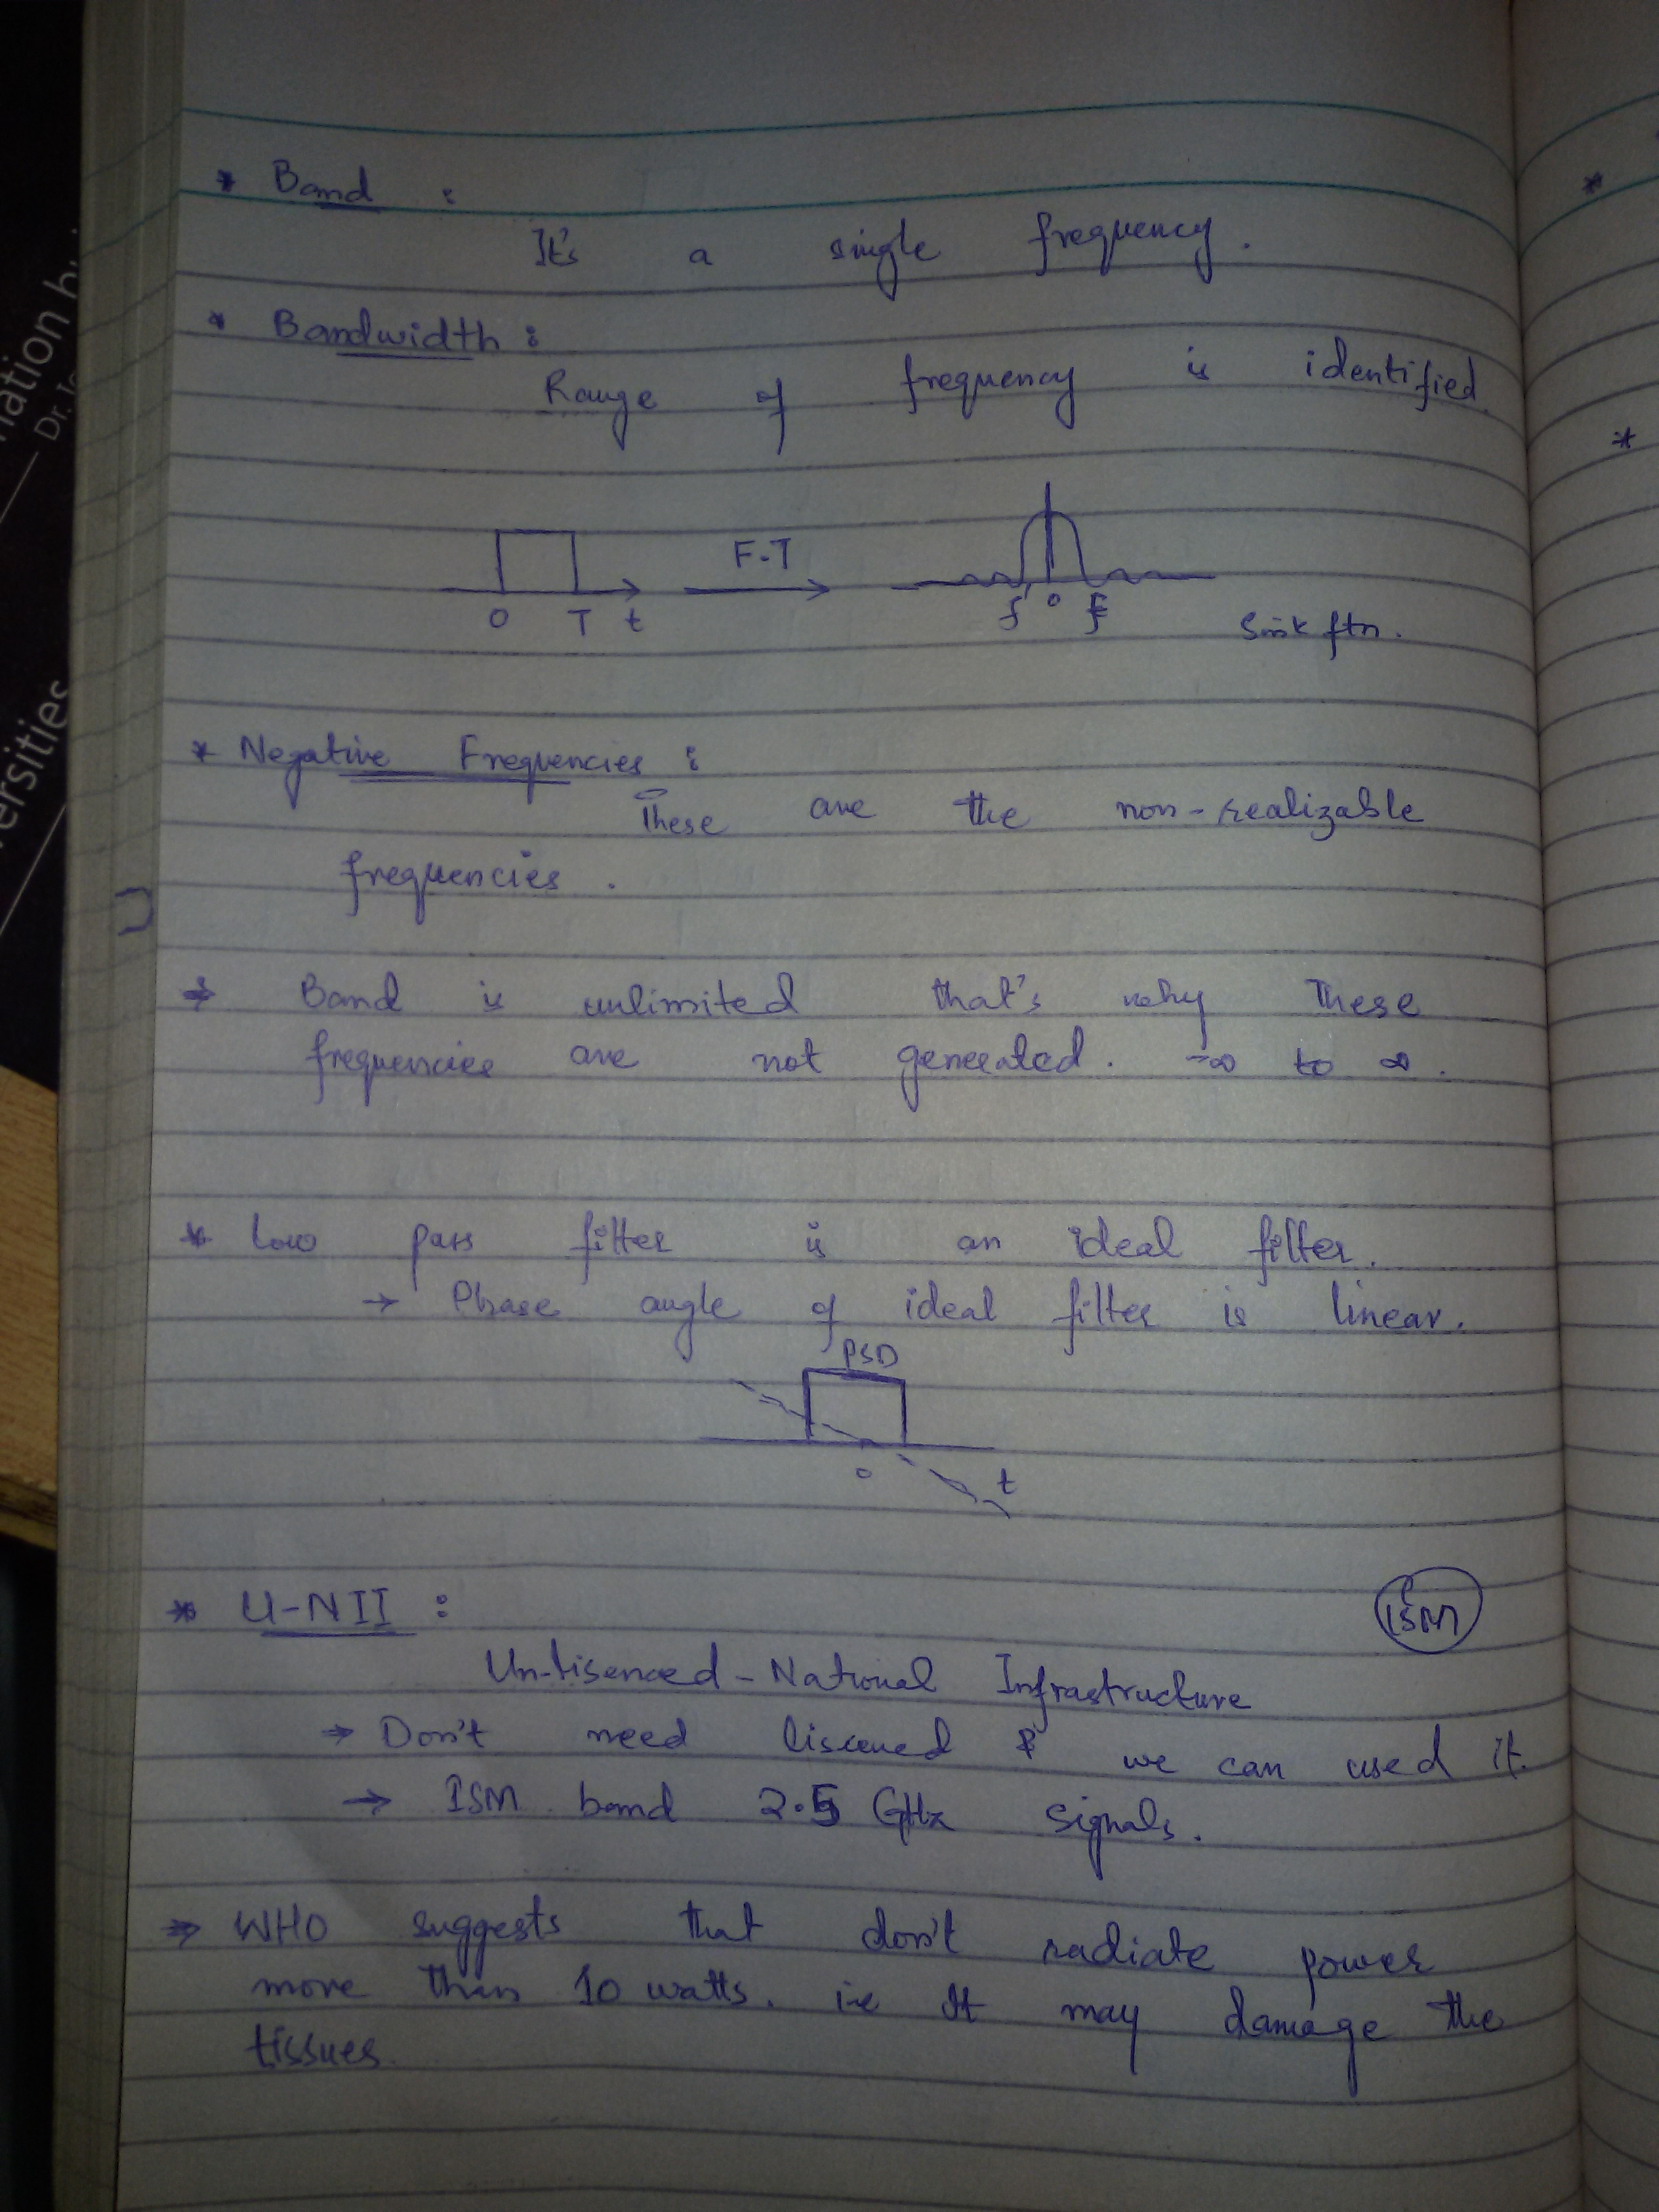 * Band :
It's a single frequency.
* Bandwidth :
Range of frequency is identified.
F.T
0 T t
f 0 f
Sink ftn.
* Negative Frequencies :
These are the non-realizable
frequencies.
→ Band is unlimited that's why These
frequencies are not generated. -∞ to ∞.
* Low pass filter is an ideal filter.
→ Phase angle of ideal filter is linear.
PSD
0 t
* U-NII :
ISM
Un-lisenced - National Infrastructure
→ Don't need liscened & we can used it.
→ ISM band 2.5 GHz signals.
→ WHO suggests that don't radiate power
more than 10 watts. i.e It may damage the
tissues.
nation b
Dr.
ersities